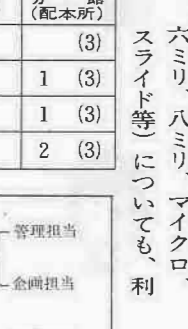 六ミリ、八ミリ、マイクロ、
スライド等）について��、利
館
(配本所)
(3)
1 (3)
1 (3)
2 (3)
管理担当
企画担当